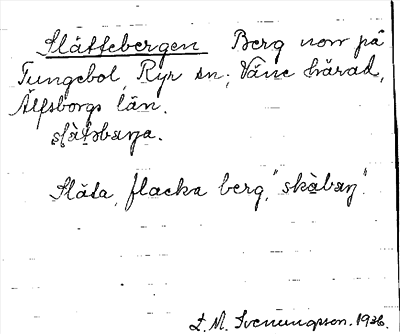 Slättebergen Berg norr på
Tungebol, Ryr sn; Väne härad,
Älfsborgs län.
Släta, flacka berg,
L. M. Svenungsson. 1936.